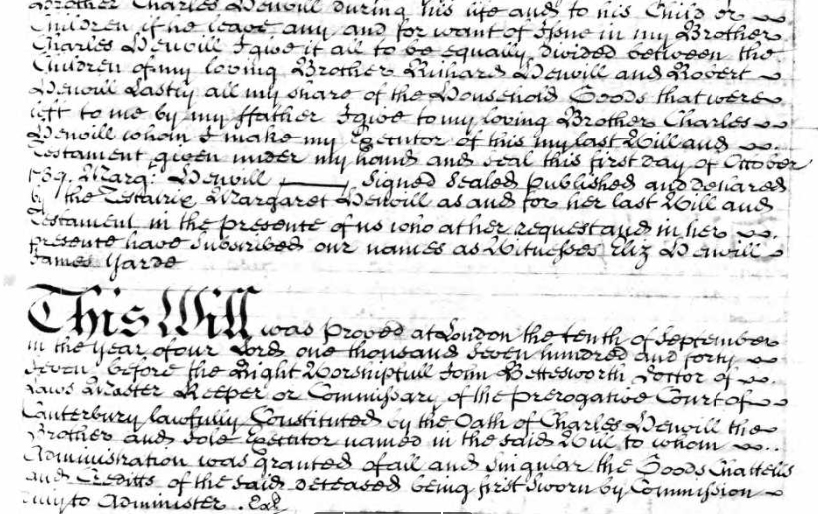 Brother Charles Newill during his life and to his Child or
Children if he leave any and for want of Issue in my Brother
Charles Newill I give it all to be equally divided between the
Children of my loving Brother Richard Newill and Robert
Newill Lastly all my share of the Household Goods that were
left to me by my ffather I give to my loving Brother Charles
Newill whom I make my Executor of this my last Will and
Testament given under my hand and seal this first day of October
1739. Marg: Newill ——— Signed Sealed published and declared
by the Testatrix Margaret Newill as and for her last Will and
Testament in the presence of us who at her request and in her
presence have subscribed our names as Witnesses Eliz Newill
James Yarde
This Will was proved at London the tenth of September
in the year of our Lord one thousand seven hundred and forty
seven before the Right Worshipfull John Bettesworth Doctor of
Laws Master Keeper or Commissary of the Prerogative Court of
Canterbury lawfully Constituted by the Oath of Charles Newill the
Brother and sole Executor named in the said Will to whom
Administration was granted of all and singular the Goods Chattells
and Creditts of the said deceased being first sworn by Commission
duly to Administer. Exd